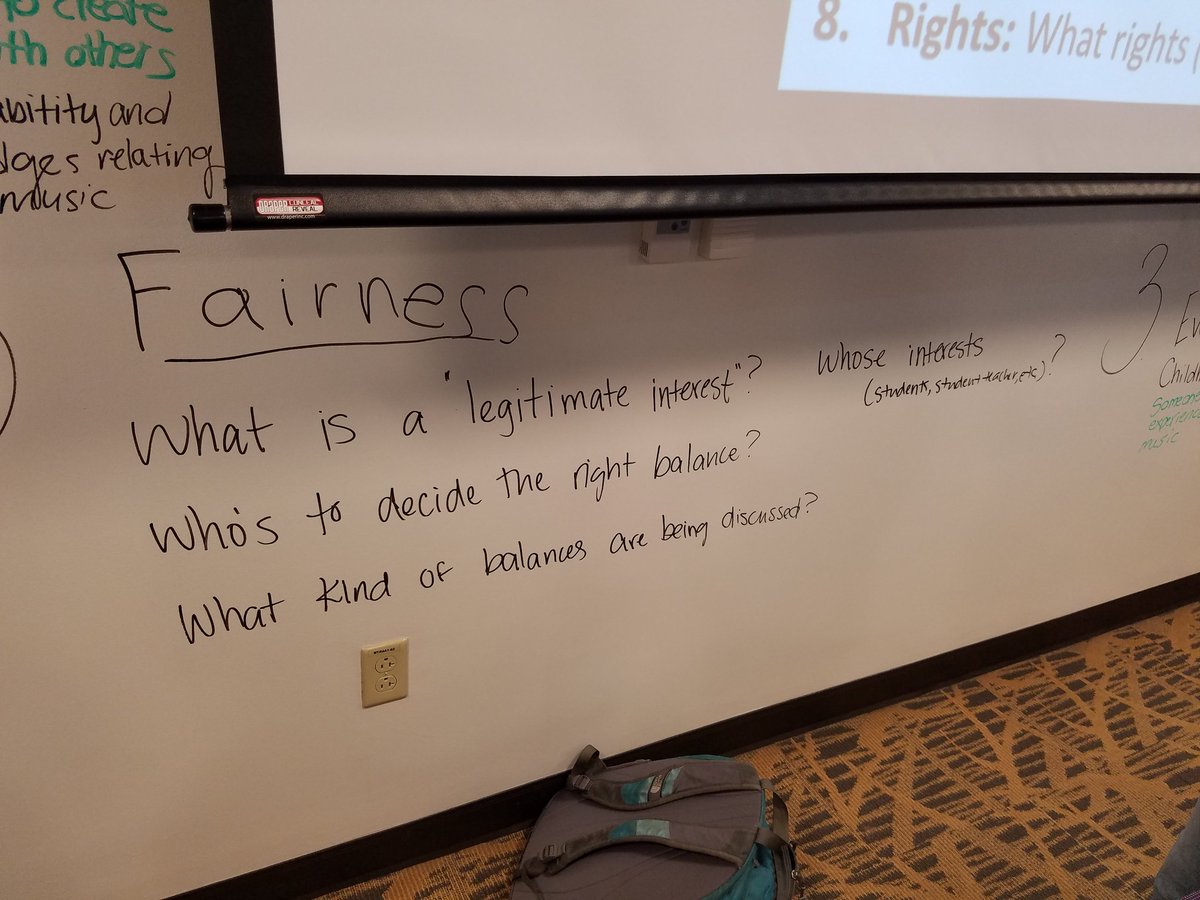 to create
th others
abitity and
dges relating
music
8. Rights: What rights
REVEAL
www.draperinc.com
Fairness
What is a "legitimate interest"? Whose interests
(students, student teacher, etc)?
Who's to decide the right balance?
What kind of balances are being discussed?
3
Ev
Child
Someone
experience
music